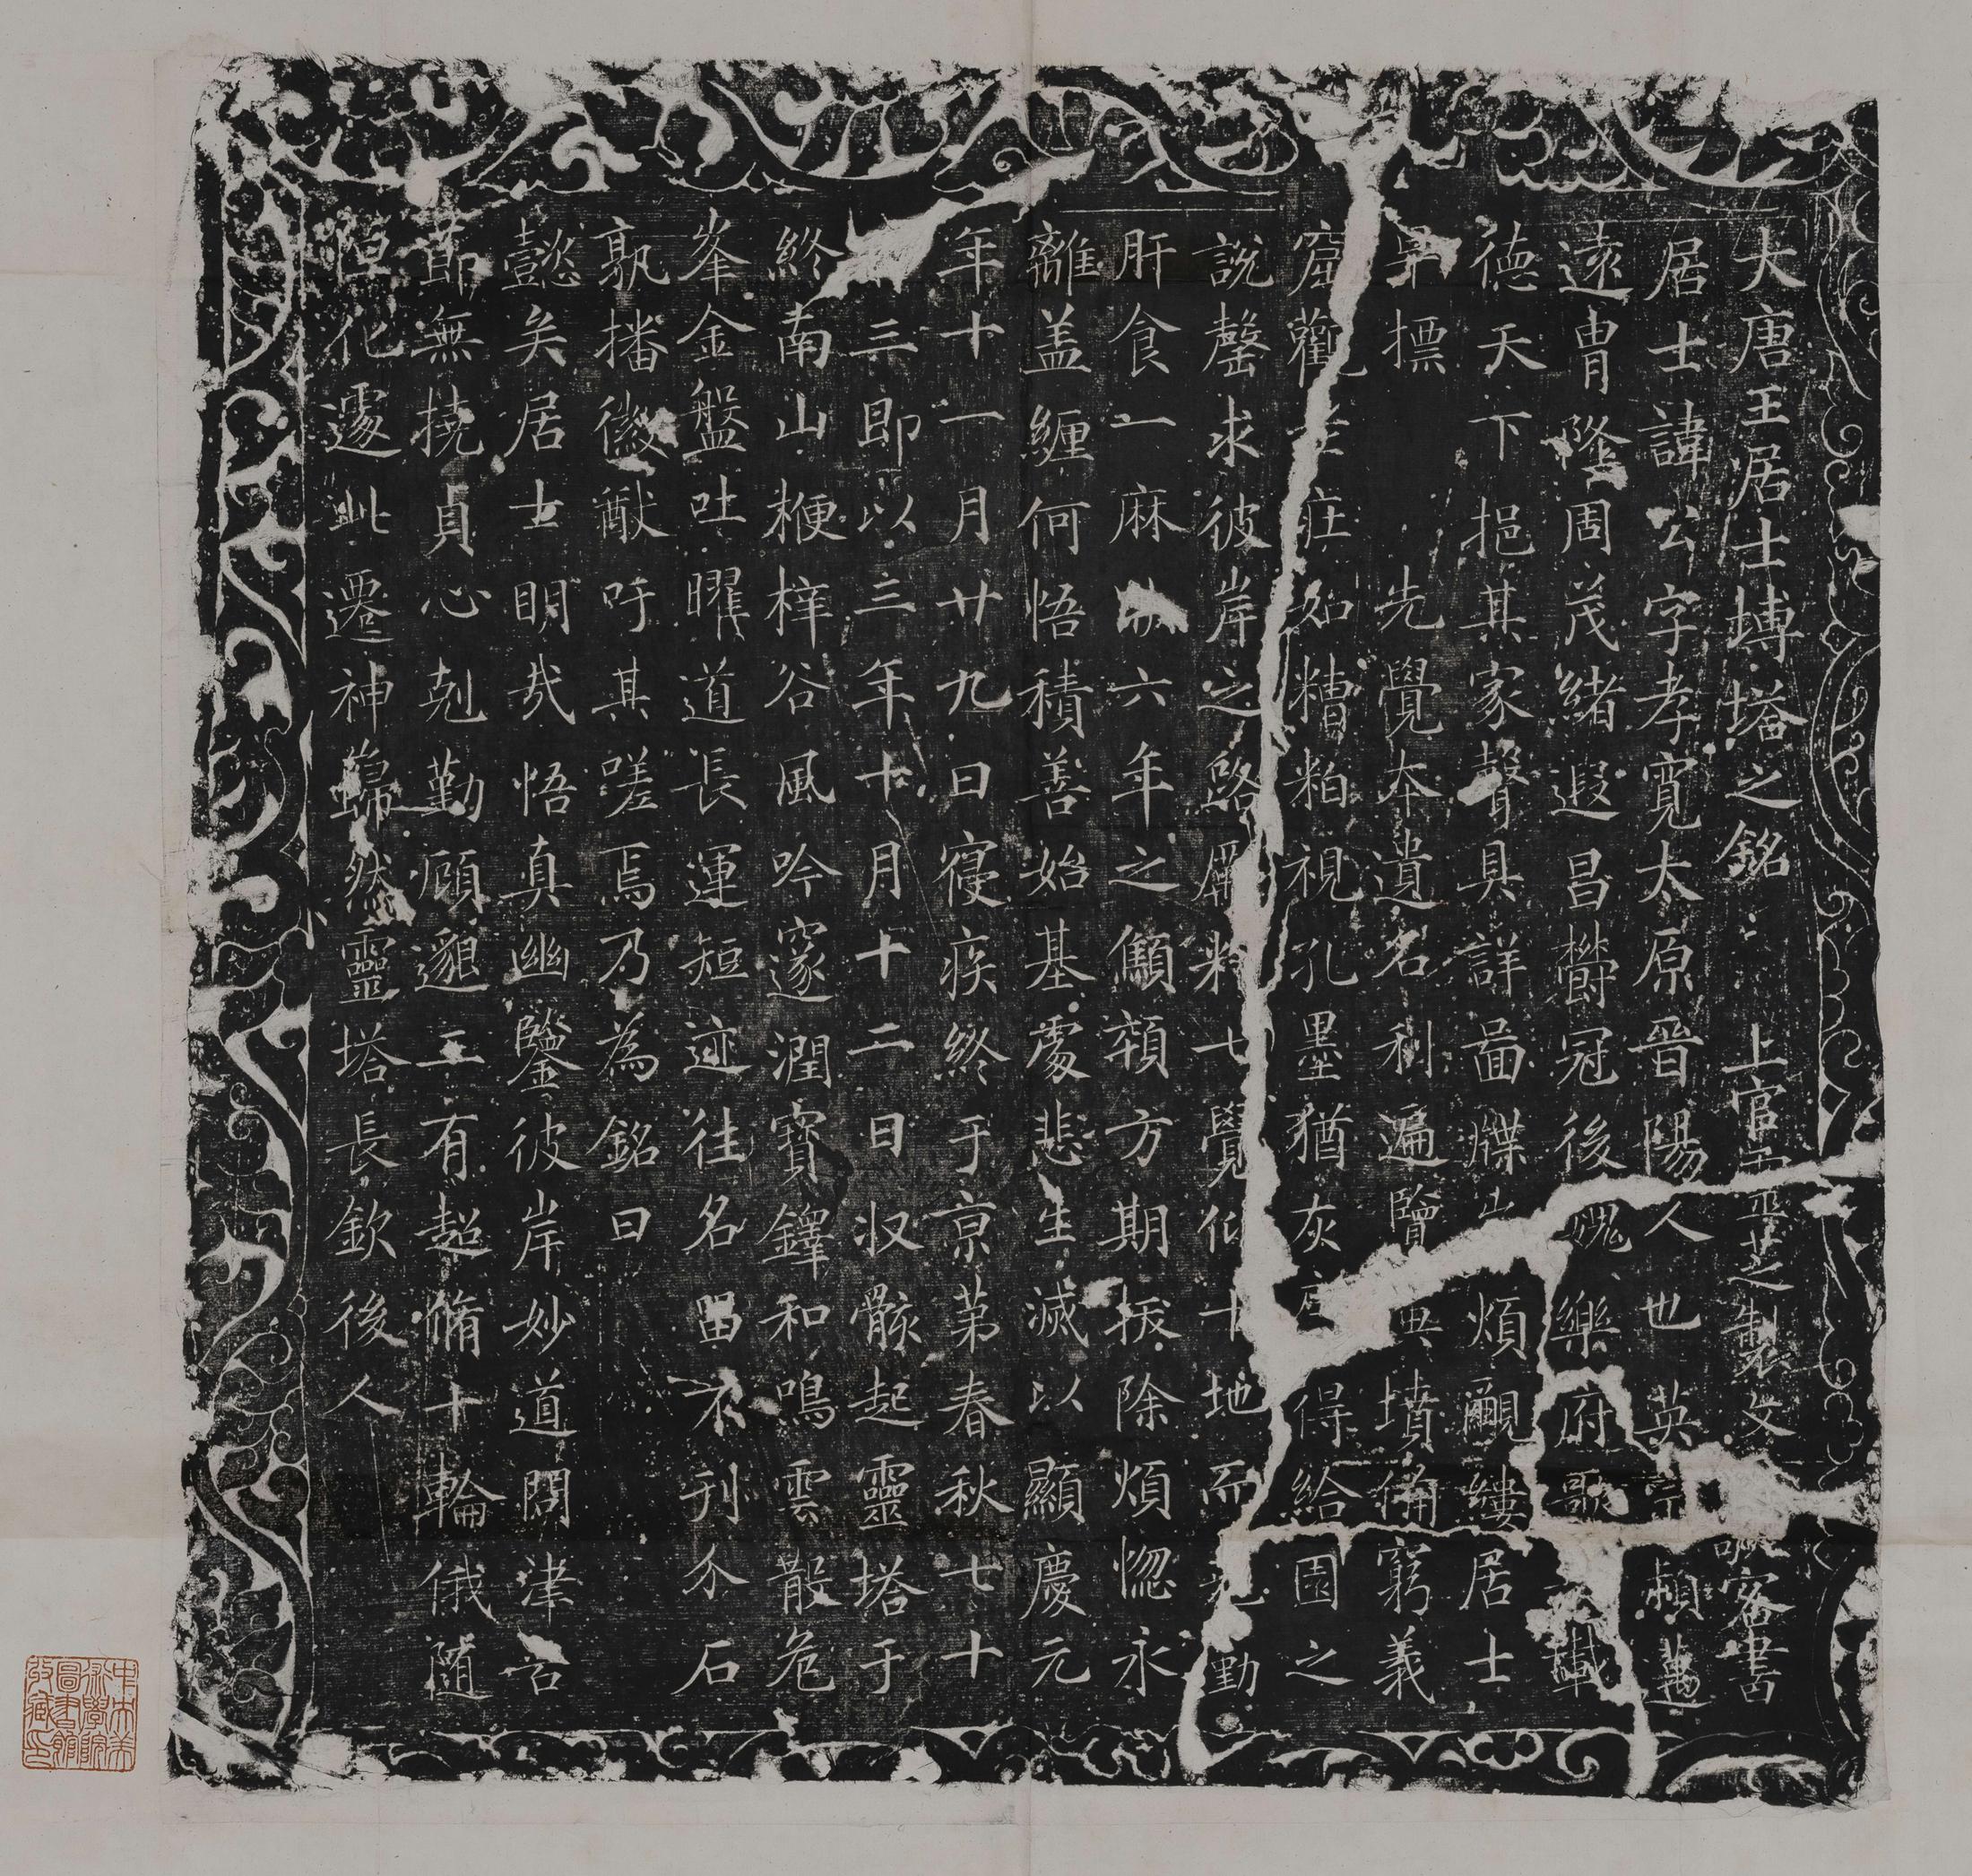 大唐王居士塼塔之銘 上官靈芝製文 敬客書
居士諱公字孝寬太原晉陽人也英宗穎邁
遠冑隆周茂緒遐昌欝冠後魏樂府歌其載
德天下挹其家聲具詳啚牒煩觀縷居士
早摽先覺本遺名利遍覽典墳備窮義
窟觀老莊如糟粕視孔墨猶灰塵得給園之
說罄求彼岸之路屏粒七覺仰十地而克勤
肝食一麻六年之顱顙方期拔除煩惚永
離盖纏何悟積善始基處悲生滅以顯慶元
年十一月廿九日寑疾終于京苐春秋七十
三即以三年十月十二日收骸起靈塔于
終南山楩梓谷風吟邃澗寶鐸和鳴雲散危
峯金盤吐曜道長運短迹往名留不刊介石
孰播徽猷吁其嗟焉乃為銘曰
懿矣居士明哉悟真幽鑒彼岸妙道問津苦
節無撓貞心剋勤顧邈三有超脩十輪俄隨
怛化遽此遷神歸然靈塔長欽後人
中央美術學院圖書館收藏印